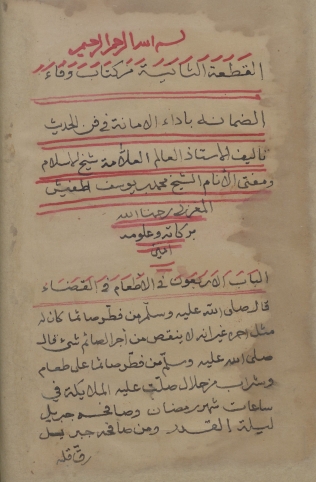 بسم الله الرحمن الرحيم
القطعة الثانية من كتاب وفاء
الضمانه باداء الامانة في فن الحديث
تاليف الاستاذ العالم العلامة شيخ الاسلام
ومفتي الانام الشيخ محمد بن يوسف اطفيش
المغربي رحمنا الله
ببركاته وعلومه
امين
الباب الاربعون في الاطعام والقضاء
قال صلى الله عليه وسلم من فطر صائما كان له
مثل اجره غير انه لا ينقص من أجر الصائم شئ قال
صلى الله عليه وسلم من فطر صائما على طعام
وشراب من حلال صلت عليه الملايكة في
ساعات شهر رمضان وصافحه جبريل
ليلة القدر ومن صافحه جبريل
رق قلبه